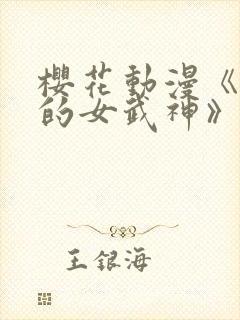 櫻花動漫《
的女武神》
王銀海